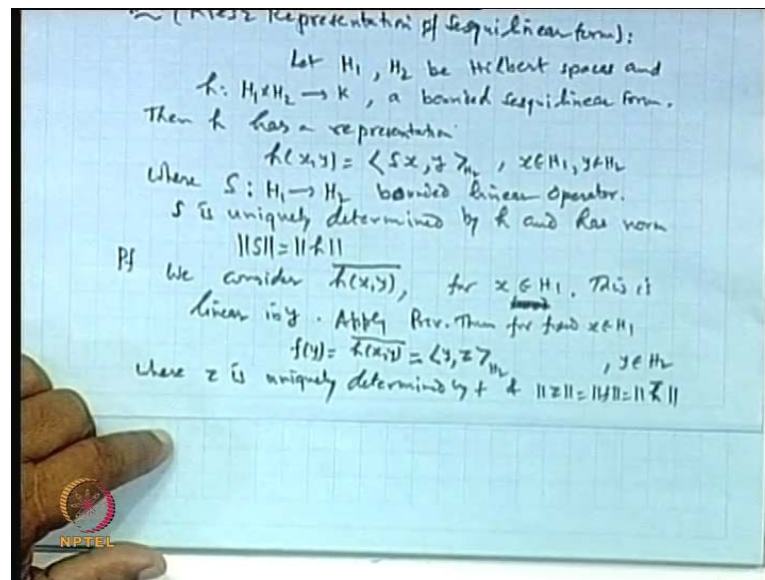 (Riesz Representation of Sesquilinear form):
Let H₁, H₂ be Hilbert spaces and
h: H₁×H₂ → K, a bounded sesquilinear form.
Then h has a representation
h(x,y) = ⟨Sx, y⟩_H₂, x∈H₁, y∈H₂
where S: H₁ → H₂ bounded linear operator.
S is uniquely determined by h and has norm
||S|| = ||h||
Pf We consider \overline{h(x,y)}, for x ∈ H₁. This is
linear in y. Apply Prev. Thm for fixed x∈H₁
f(y) = \overline{h(x,y)} = ⟨y, z⟩_H₂, y∈H₂
where z is uniquely determined by f & ||z|| = ||f|| = ||\overline{h}||
NPTEL